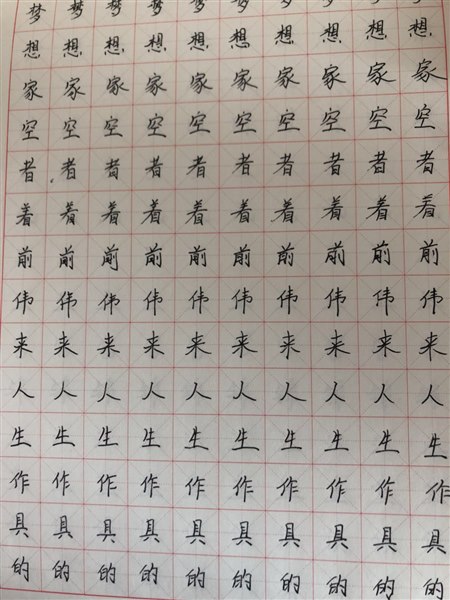 梦梦梦梦梦梦梦梦梦梦
想想想想想想想想想想
家家家家家家家家家家
空空空空空空空空空空
者者者者者者者者者者
着着着着着着着着着着
前前前前前前前前前前
伟伟伟伟伟伟伟伟伟伟
来来来来来来来来来来
人人人人人人人人人人
生生生生生生生生生生
作作作作作作作作作作
具具具具具具具具具具
的的的的的的的的的的